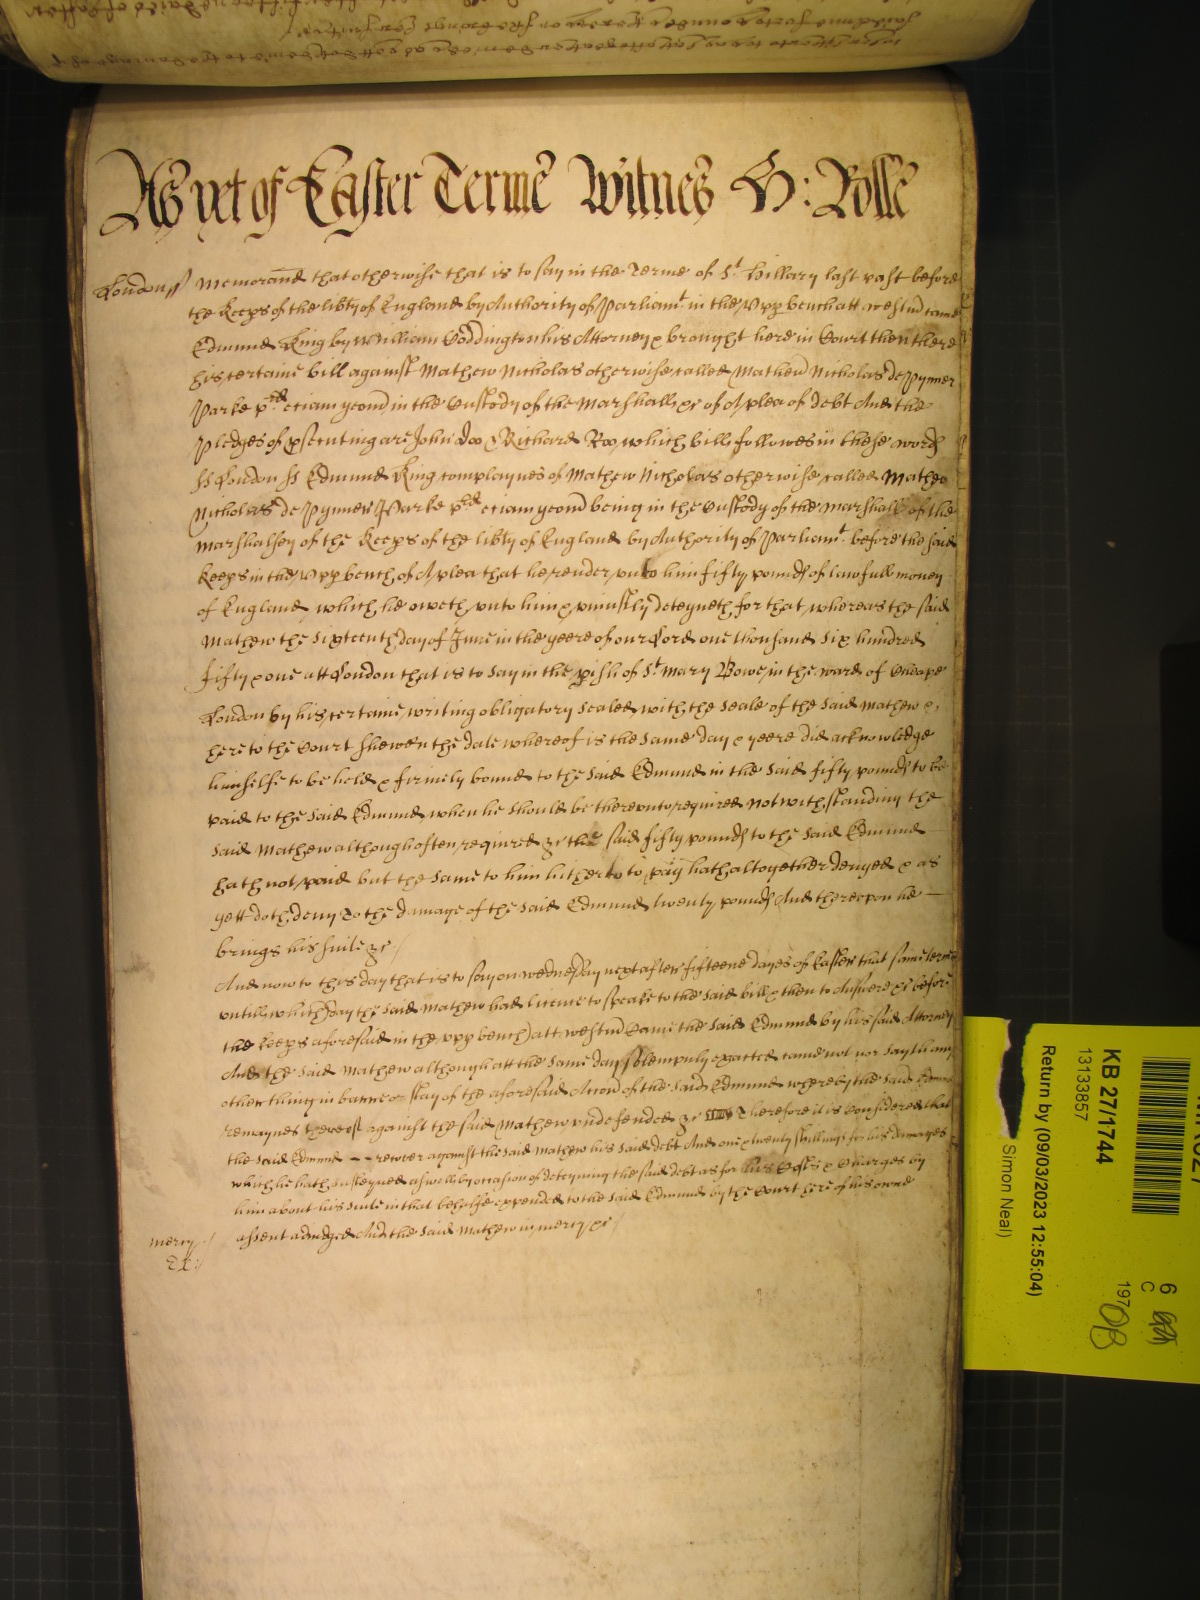 As yet of Easter Terme Witnes H: Rolle
London ss Memorand that otherwise that is to say in the Terme of St Hillary last past before
the Keeps of the libty of England by Authority of Parliamt in the Upp bench att Westm came
Edmund King by William Boddington his Attorney & brought here in Court then there
his certaine bill against Mathew Nicholas otherwise called Mathew Nicholas de Pynner
Parke in the Custody of the Marshall &c of A plea of debt And the
Pledges of psecuting are John Doo & Richard Roo which bill followes in these words
ss London ss Edmund King complaynes of Mathew Nicholas otherwise called Mathew
Nicholas de Pynner Parke being in the Custody of the Marshall of the
Marshalsey of the Keeps of the libty of England by Authority of Parliamt before the said
Keeps in the Upp bench of A plea that he render unto him fifty pounds of lawfull money
of England which he oweth unto him & uniustly deteyneth for that whereas the said
Mathew the sixteenth day of June in the yeere of our Lord one thousand six hundred
fifty & one att London that is to say in the pish of St Mary Bowe in the ward of Cheape
London by his certaine writing obligatory sealed with the seale of the said Mathew &
here to the Court shewen the date whereof is the same day & yeere did acknowledge
himselfe to be held & firmely bound to the said Edmund in the said fifty pounds to be
paid to the said Edmund when he should be thereunto required Notwithstanding the
said Mathew although often required &c the said fifty pounds to the said Edmund
hath not paid but the same to him hitherto to pay hath altogether denyed & as
yett doth deny To the damage of the said Edmund twenty pounds And thereupon he
brings his suite &c
And now to this day that is to say on wednesday next after fifteene dayes of Easter that same terme
untill which day the said Mathew had licence to speake to the said bill & then to Answere &c before
the keeps aforesaid in the upp bench att westm Came the said Edmund by his said Attorney
And the said Mathew although att the same day solempnly exacted came not nor sayth any
other thing in barre or stay of the aforesaid Accon of the said Edmund whereby the said Edmund
remaynes thereof against the said Mathew undefended &c Therefore it is Considered that
the said Edmund recover against the said Mathew his said debt And one & twenty shillings for his damages
which he hath susteyned aswell by occasion of deteyning the said debt as for his Costs & Charges by
him about his suite in that behalfe expended to the said Edmund by the Court here of his owne
assent adiudged And the said Mathew in mercy &c
mercy
Ex:
KB 27/1744
13133857
Return by (09/03/2023 12:55:04)
Simon Neal)
6
C
197